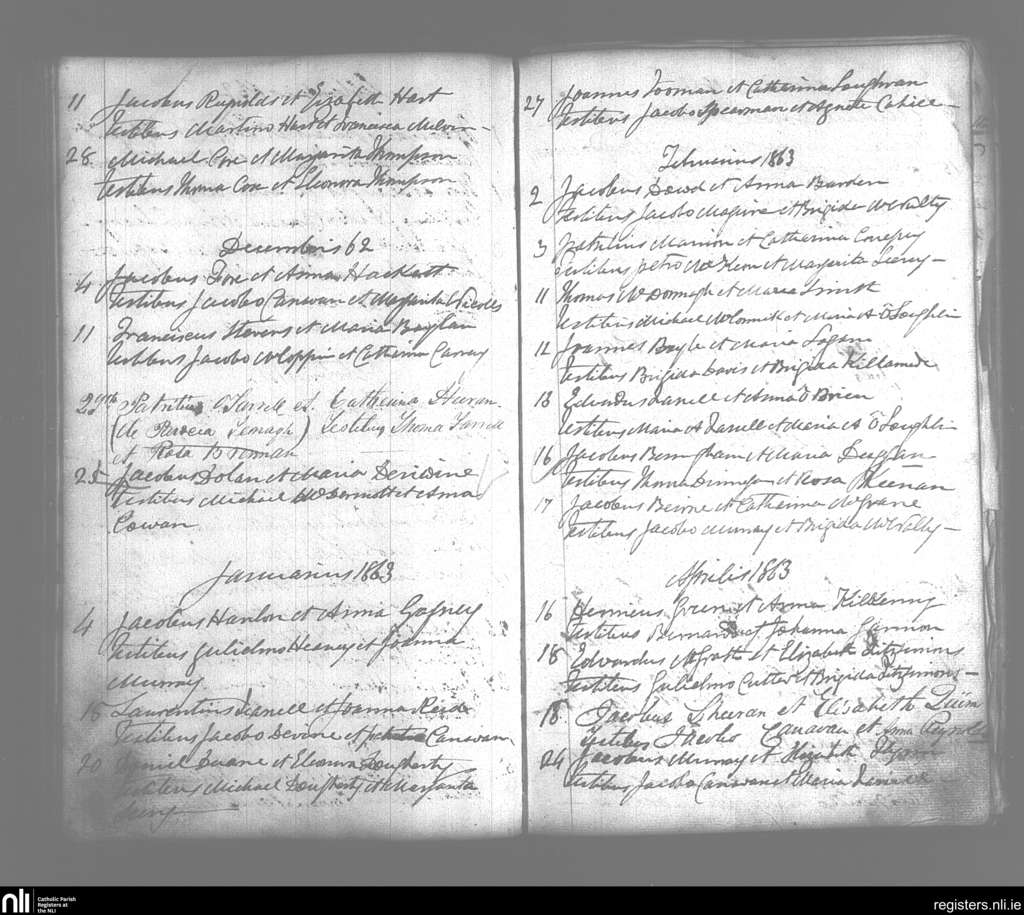 11 Jacobus Reynolds et Elizabeth Hart
Testibus Martino Hart et Francisca Melvin
28 Michael Coxe et Margarita Thompson
Testibus Thoma Cox et Eleonora Thompson
Decembris 62
4 Jacobus Fox et Anna Hackett
Testibus Jacobo Canavan et Margarita Nicolls
11 Franciscus Stevens et Maria Boylan
Testibus Jacobo et Catherina
Patritius O'Farrell et Catherina
(de Temagh) Testibus Thoma Farrell
et Rosa Brennan
25 Jacobus Dolan et Maria Devidine
Testibus Michael McDermott et Anna
Cowan
Januarius 1863
4 Jacobus Hanlon et Anna Gafney
Testibus Gulielmo Heaney et Joanna
Murray
Laurentius et Joanna Reid
Testibus Jacobo Devine et Canavan
20 Daniel Duane et Eleonra Dougherty
Testibus Michael Dougherty et Margarita
27 Joannes et Catherina Loughran
Testibus Jacobo Spearman et Agneta Cahill
Februarius 1863
2 Jacobus Dowd et Anna Barden
Testibus Jacobo Maguire et Brigida McNally
3 Patritius Marrion et Catherina
Testibus Petro McKeon et Margarita
11 Thomas McDormagh et Maria
Testibus Michael McCormick et Maria A O'Loughlin
12 Joannes Boyle et Maria
Testibus Brigida Davis et Brigida
13 Edvardus Farrell et Anna O'Brien
Testibus Maria A Farrell et Maria A O'Loughlin
16 Jacobus Bermingham et Maria Duggan
Testibus Thoma et Rosa Keenan
17 Jacobus Beirne et Catherina McGrane
Testibus Jacobo Murray et Brigida McNally
Aprilis 1863
16 Henricus Green et Anna Kilkenny
Testibus Bernardo et Johanna Gannon
18 Edvardus McGrath et Elizabeth Fitzsimons
Testibus Gulielmo Cutler et Brigida Fitzsimons
18 Jacobus Sheeran et Elisabeth Quinn
Testibus Jacobo Canavan et Anna Reynolds
24 Jacobus Murray et Elizabeth
Testibus Jacobo Canavan et Maria
nli Catholic Parish
Registers at
the NLI
registers.nli.ie